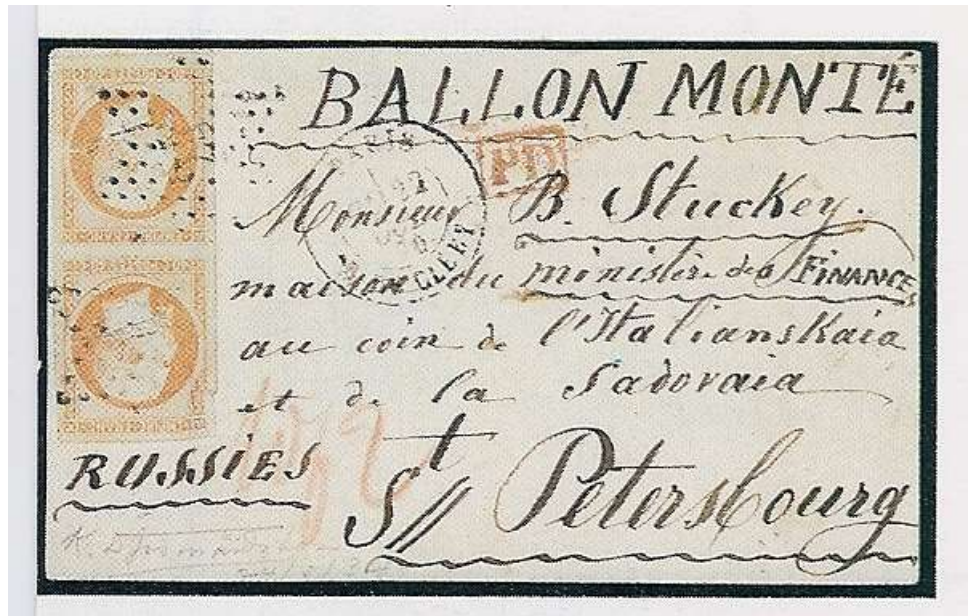 BALLON MONTÉ
PARIS
PD
Monsieur B. Stuckey.
maison du ministère des FINANCES
au coin de l'Italianskaia
et de la Sadovaia
RUSSIES
St Petersbourg